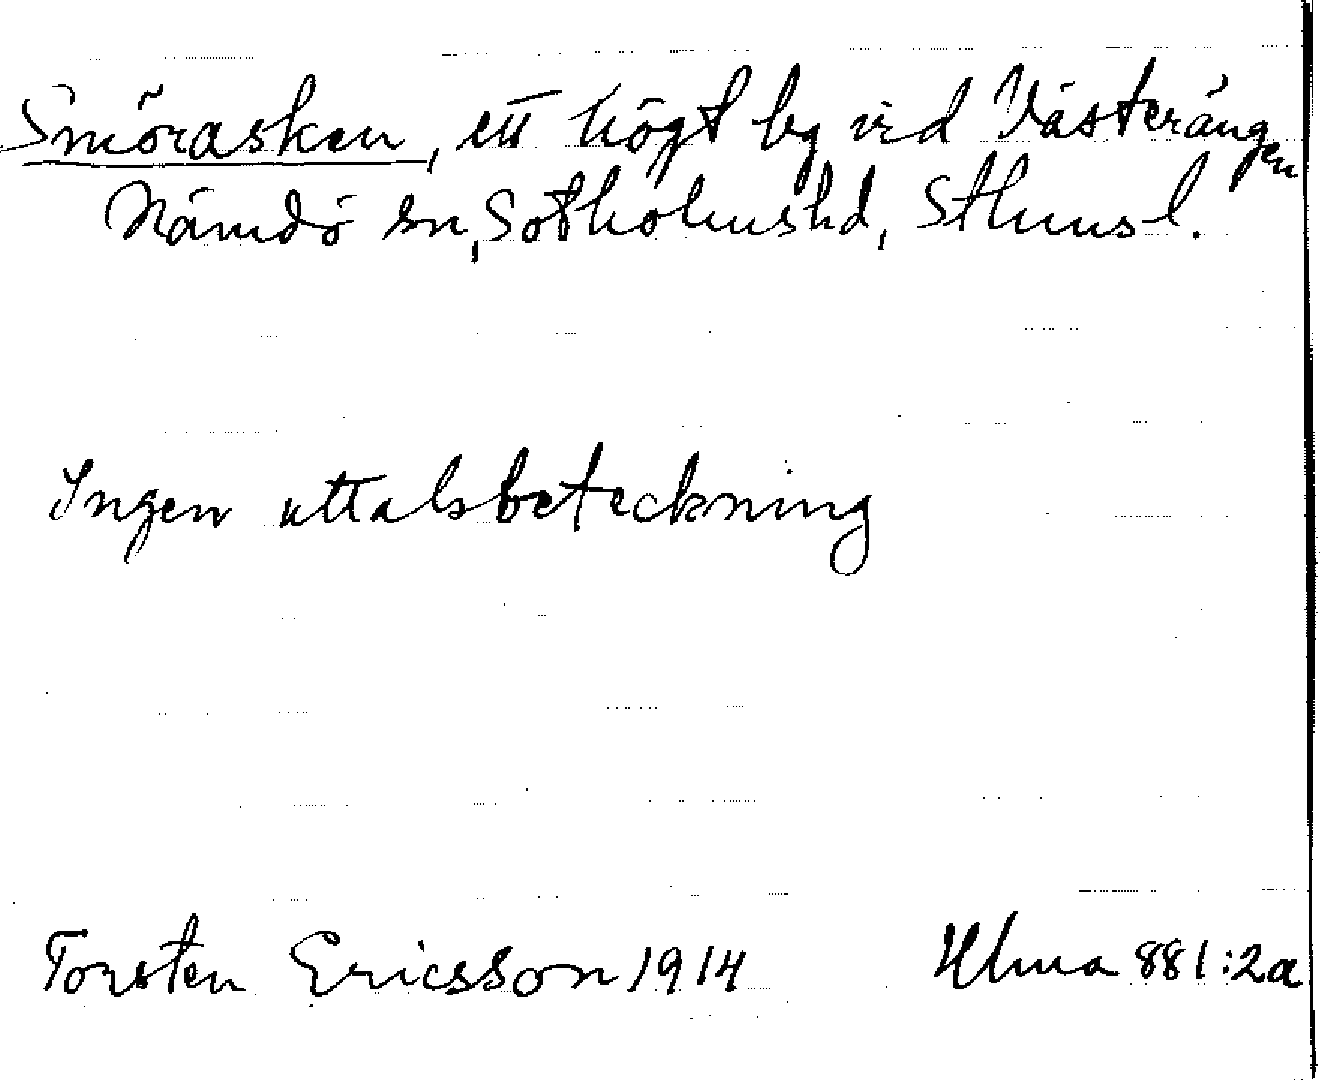 Smörasken, ett högt bg vid Västerängen
Nämdö sn, Sotholms hd, Sthms l.
Ingen uttalsbeteckning
Torsten Ericsson 1914 Ulma 881:2a